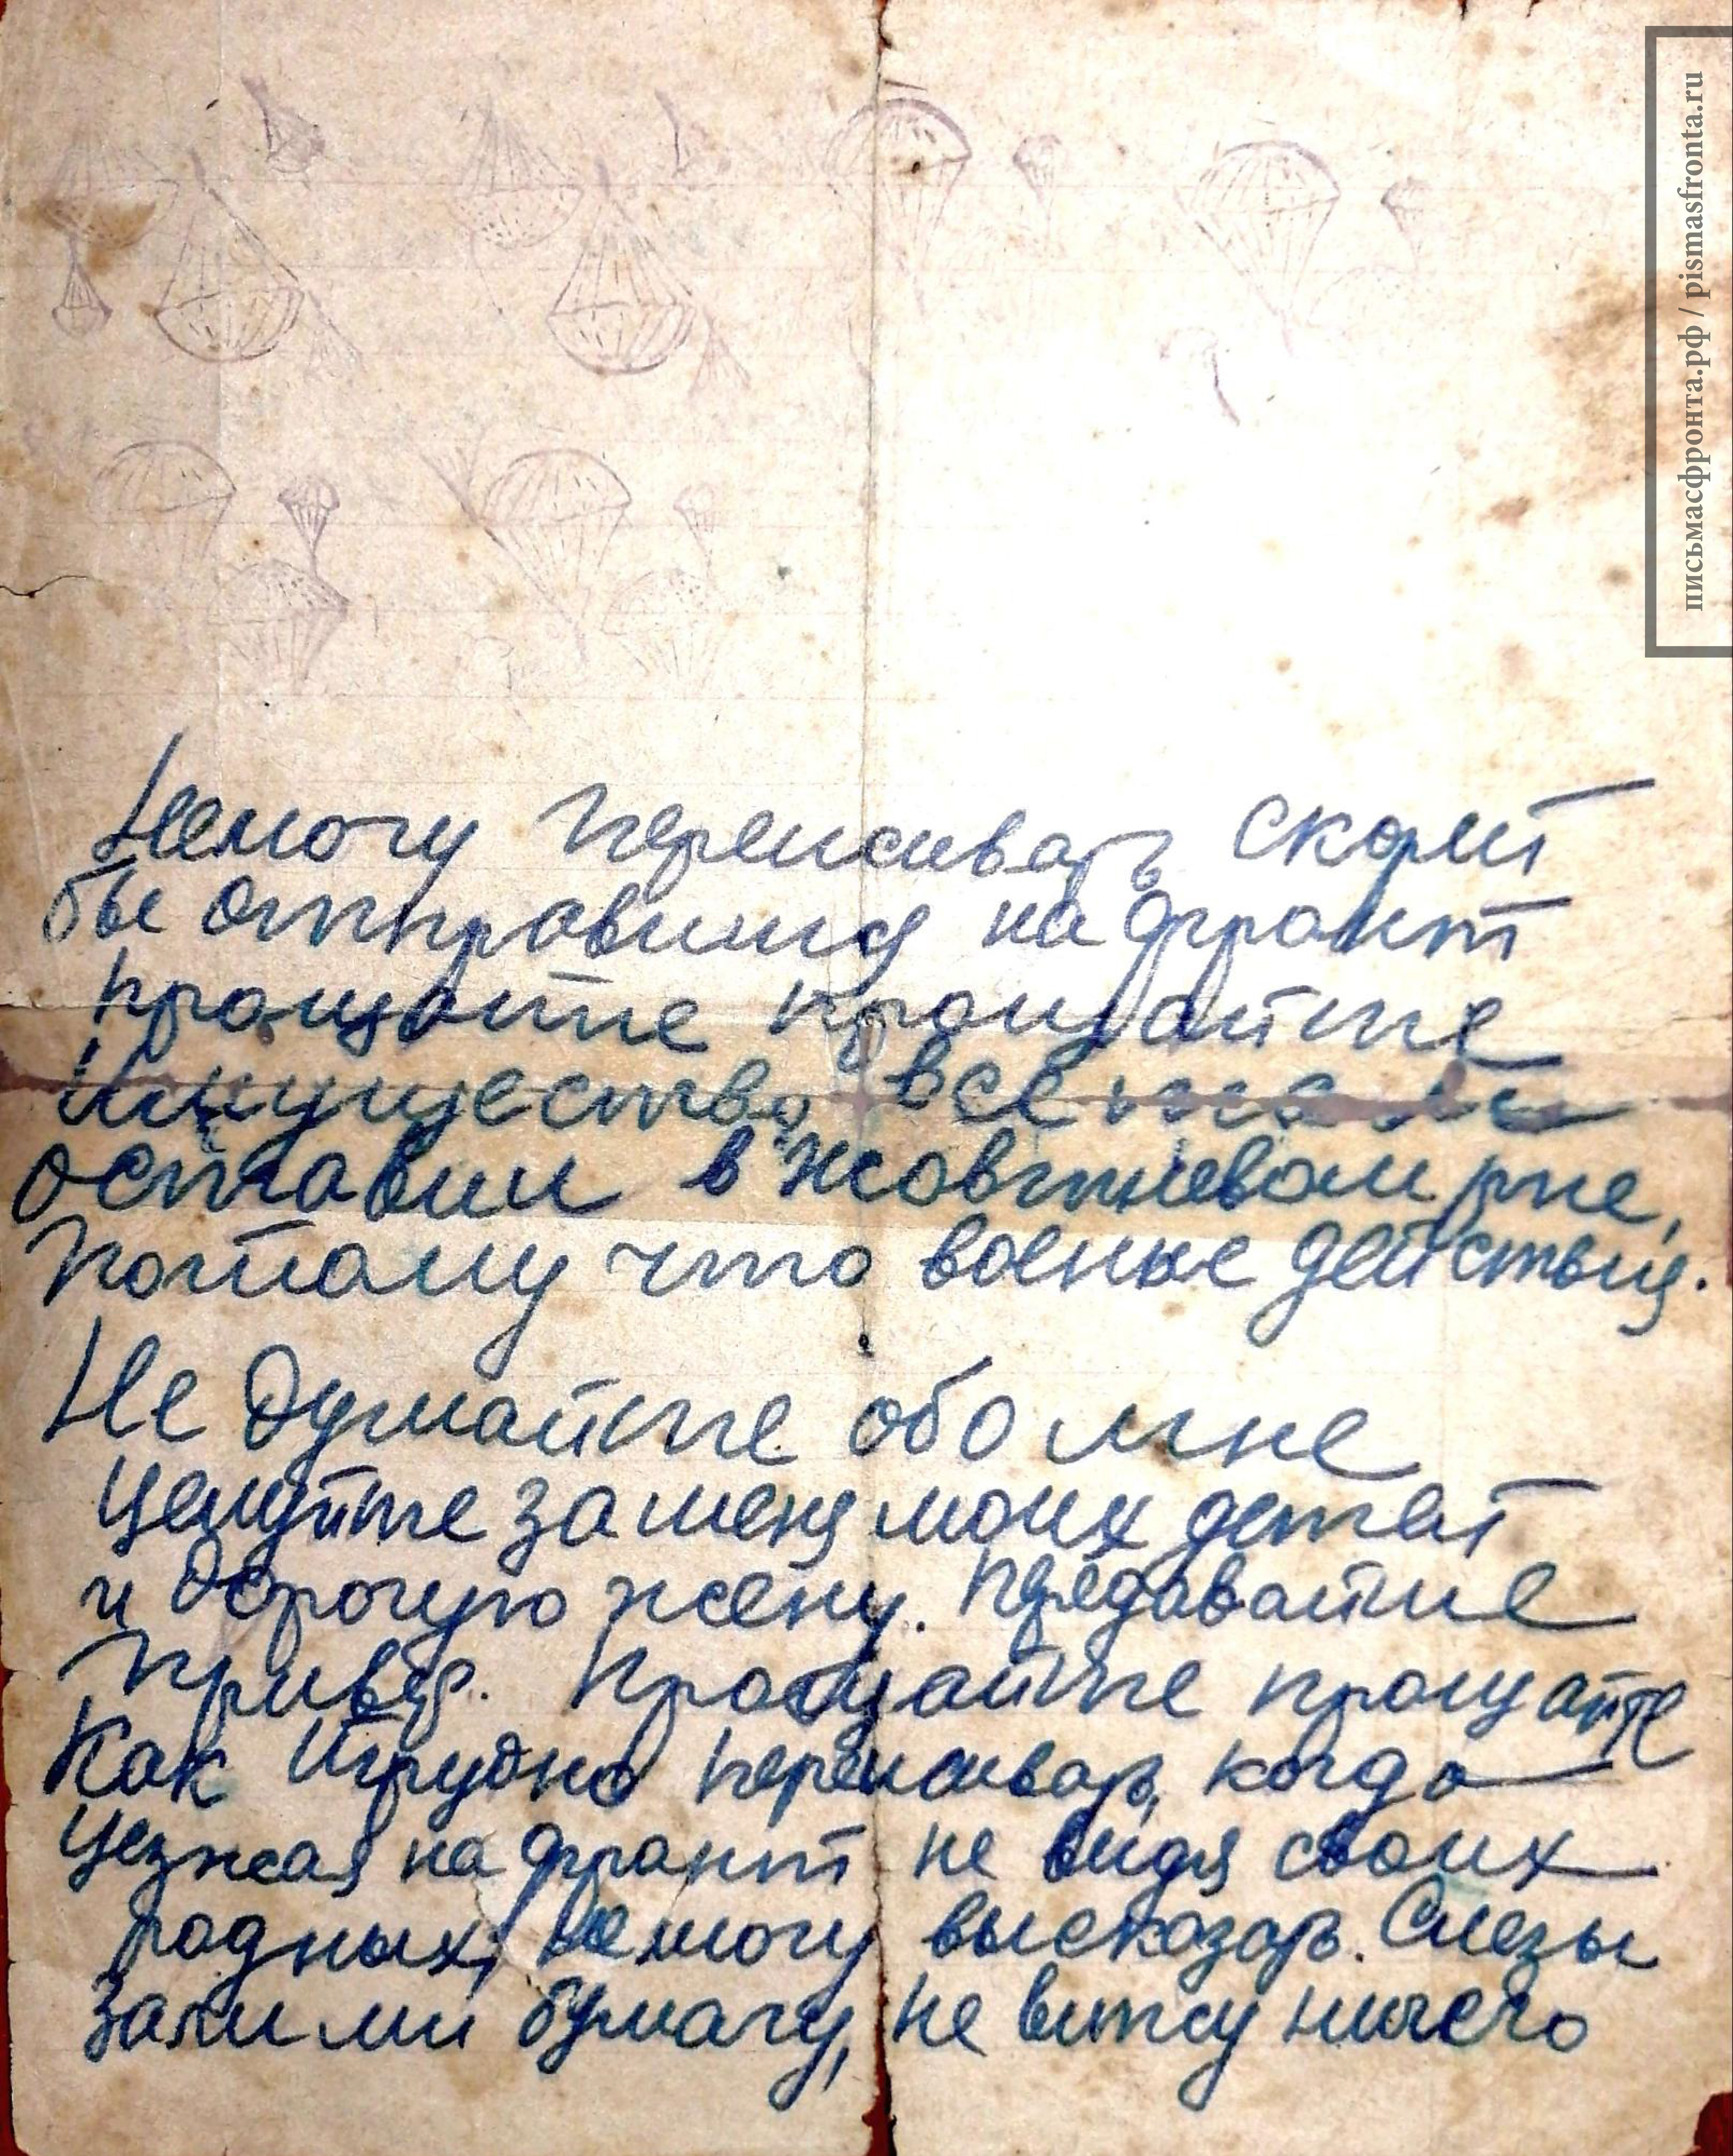 Немогу переживать скорей
бы отправица на фронт
прощайте прощайте
Имущество все
оставил в Жовтневом р-не,
потому что военые действия.
Не думайте обо мне
целуйте за меня моих детей
и дорогую жену. Предавайте
привет. Прощайте прощайте
Как трудно переживать, когда
уезжая на фронт не видя своих
родных, немогу высказать. Слезы
залими бумагу, не вижу ничего
письмасфронта.рф / pismasfronta.ru